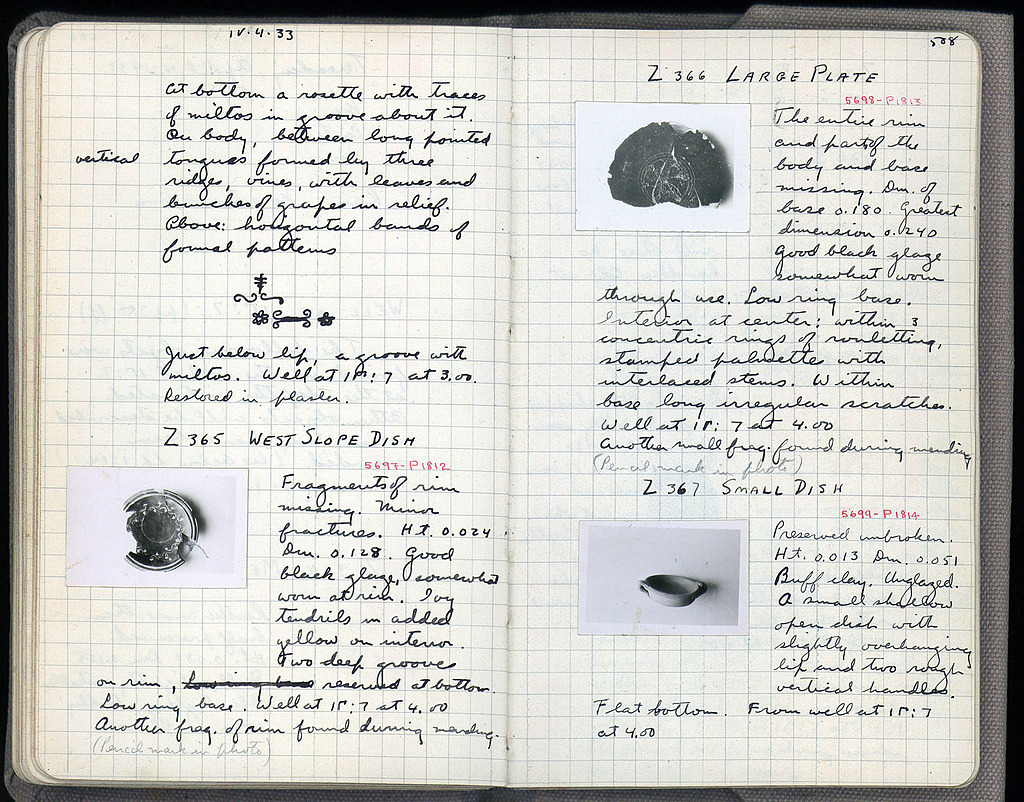 IV.4.33
At bottom a rosette with traces
of miltos in groove about it.
On body, between long pointed
vertical tongues formed by three
ridges, vines, with leaves and
bunches of grapes in relief.
Above: horizontal bands of
formal patterns
Just below lip, a groove with
miltos. Well at 15:7 at 3.00.
Restored in plaster.
Z 365 WEST SLOPE DISH
5697-P1812
Fragments of rim
missing. Minor
fractures. Ht. 0.024
Dm. 0.128. Good
black glaze, somewhat
worn at rim. Ivy
tendrils in added
yellow on interior.
Two deep grooves
on rim, low ring base reserved at bottom.
Low ring base. Well at 15:7 at 4.00
Another frag. of rim found during mending.
(Pencil mark in photo)
508
Z 366 LARGE PLATE
5698-P1813
The entire rim
and part of the
body and base
missing. Dm. of
base 0.180. Greatest
dimension 0.240
Good black glaze
somewhat worn
through use. Low ring base.
Interior at center: within 3
concentric rings of rouletting,
stamped palmette with
interlaced stems. Within
base long irregular scratches.
Well at 15:7 at 4.00
Another small frag. found during mending
(Pencil mark in photo)
Z 367 SMALL DISH
5699-P1814
Preserved unbroken.
Ht. 0.013 Dm. 0.051
Buff clay. Unglazed.
A small shallow
open dish with
slightly overhanging
lip and two rough
vertical handles.
Flat bottom. From well at 15:7
at 4.00